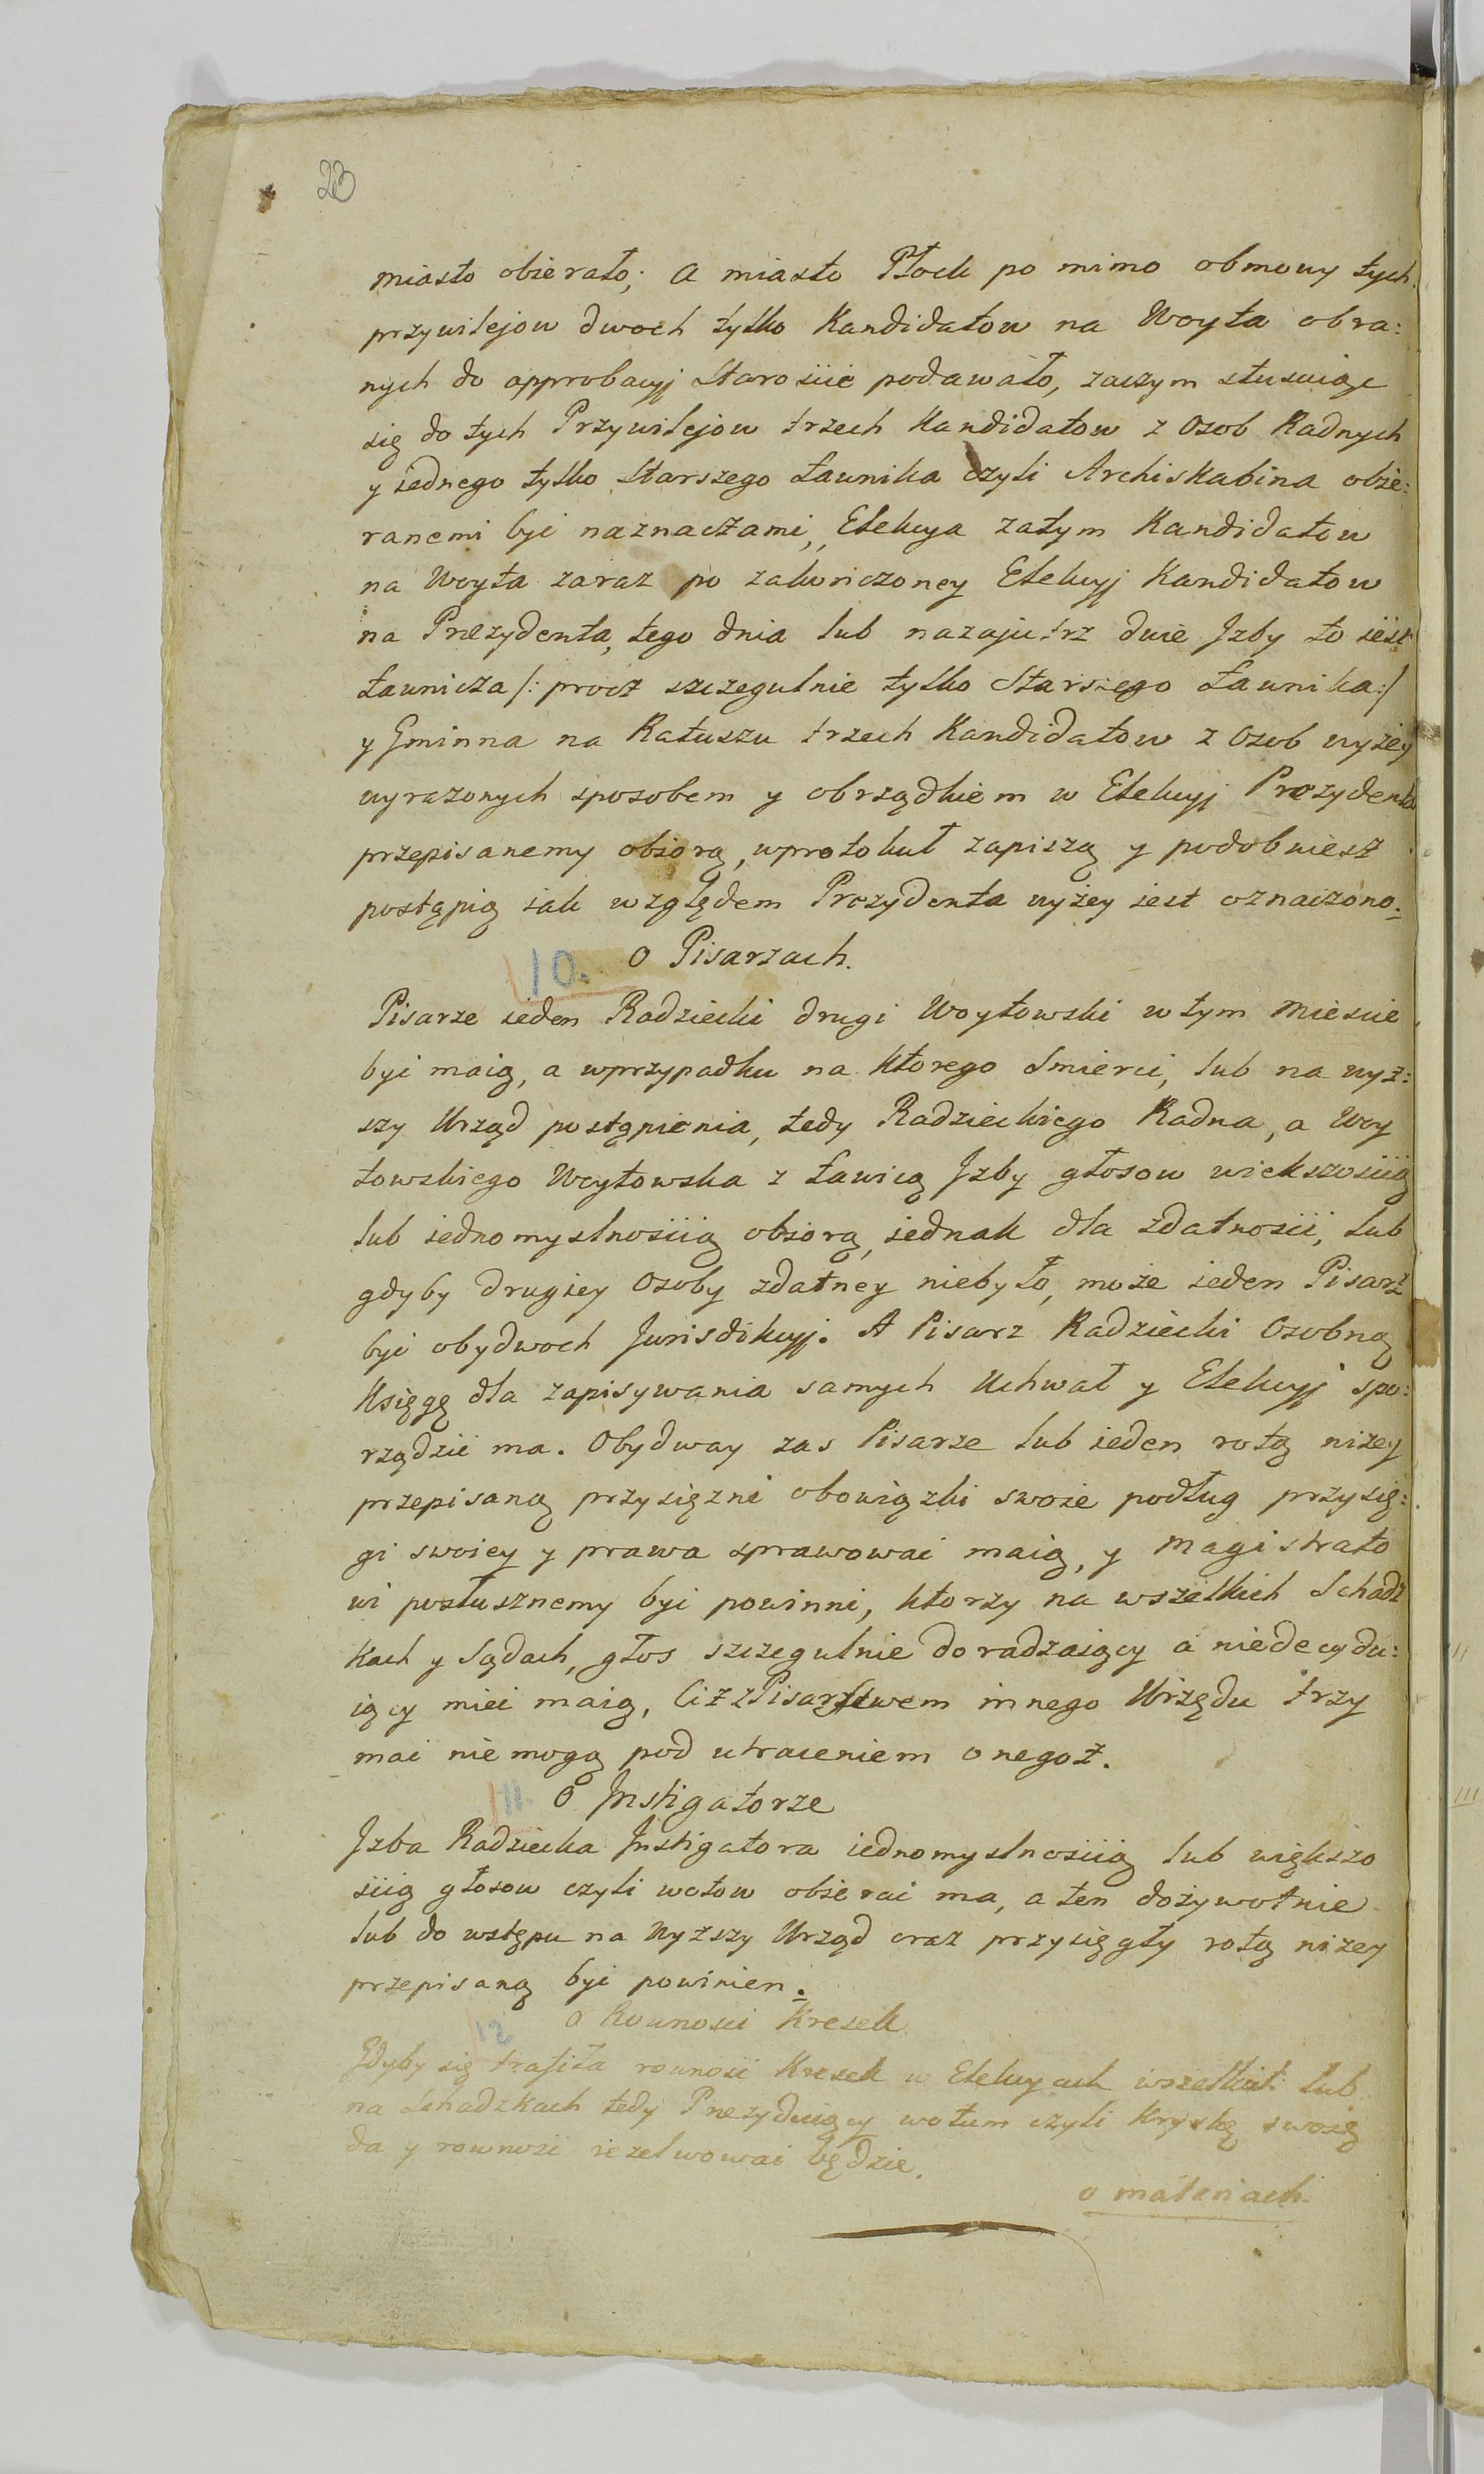 23
miasto obierało; a miasto Płock po mimo obmowy tych
przywilejow dwoch tylko Kandidatow na Woyta obra:
nych do approbacyj Starosiie podawało, zaczym stusuiąc
się do tych Przywilejow trzech Kandidatow z Osob Radnych
y iednego tylko Starszego Ławnika czyli Archiskabina obie:
ranemi być naznaczami, Elekcya zatym Kandidatow
na Woyta zaraz po zakończoney Elekcyj Kandidatow
na Prezydenta, tego dnia lub nazajutrz dwie Jzby to iest
Ławnicza /: procz szczegulnie tylko Starszego Ławnika :/
y Gminna na Ratuszu trzech Kandidatow z Osob wyżey
wyrazonych sposobem y obrządkiem w Elekcyj Prezydenta
przepisanemy obiorą, wprotokuł zapiszą y podobniesz
postąpią iak względem Prezydenta wyżey iest oznaczono.
10. O Pisarzach.
Pisarze ieden Radziecki drugi Woytowski w tym Miescie
być maią, a wprzypadku na ktorego Smierci, lub na wyż:
szy Urząd postąpienia, tedy Radzieckiego Radna, a Woy
towskiego Woytowska z Ławicą Jzby głosow wiekszosiią
lub iednomyslnosiią obiorą, iednak dla zdatnosii, lub
gdyby drugiey Osoby zdatney niebyło, może ieden Pisarz
być obydwoch Jurisdikcyj. A Pisarz Radziecki Osobną
Księgę dla zapisywania samych Uchwał y Elekcyj spo:
rządzić ma. Obydway zas Pisarze lub ieden rotą niżey
przepisaną przysiężni obowiązki swoie podług przysię:
gi swoiey y prawa sprawować maią, y Magistrato
wi posłusznemy być powinni, ktorzy na wszelkich Schadz
kach y Sądach, głos szczegulnie doradzaiący a niedecydu:
iący mieć maią, Ciż z Pisarstwem innego Urzędu trzy
mać niemogą pod utraceniem onegoż.
11. O Jnstigatorze
Jzba Radziecka Jnstigatora iednomyslnosiią lub większo
siią głosow czyli wotow obierać ma, a ten dożywotnie
lub do wstępu na Wyższy Urząd oraz przysięgły rotą niżey
przepisaną być powinien.
12 O Rownosci Kresek
Gdyby się trafiła rownosć Kresek w Elekcyach wszelkich lub
na Schadzkach tedy Prezyduiący wotum czyli Kryskę swoię
da y rownosć rezelwować będzie.
o materiach.